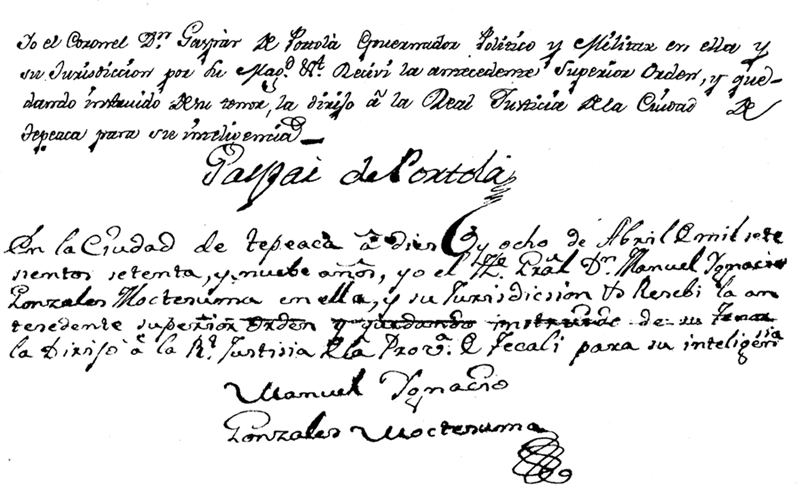 Yo el Coronel Dn. Gaspar de Portolá Governador Politico y Militar en ella y
su Jurisdiccion por su Magd. &a. Reciví la antecedente Superior Orden, y que-
dando instruido de su tenor, la dirijo â la Real Justicia de la Ciudad de
Tepeaca para su inteligencia
Gaspar de Portolá
En la Ciudad de tepeaca â dies y ocho de Abril de mil sete
sientos setenta, y nuebe años, yo el Gral. Dn. Manuel Ygnacio
Gonzales Moctesuma en ella, y su Jurisdicsion Resebi la an
tesedente superior orden y quedando instruido de su tenor
la Dirijo â la Rl. Justisia de la Prova. de Tecali para su inteligensia
Manuel Ygnacio
Gonzales Moctesuma